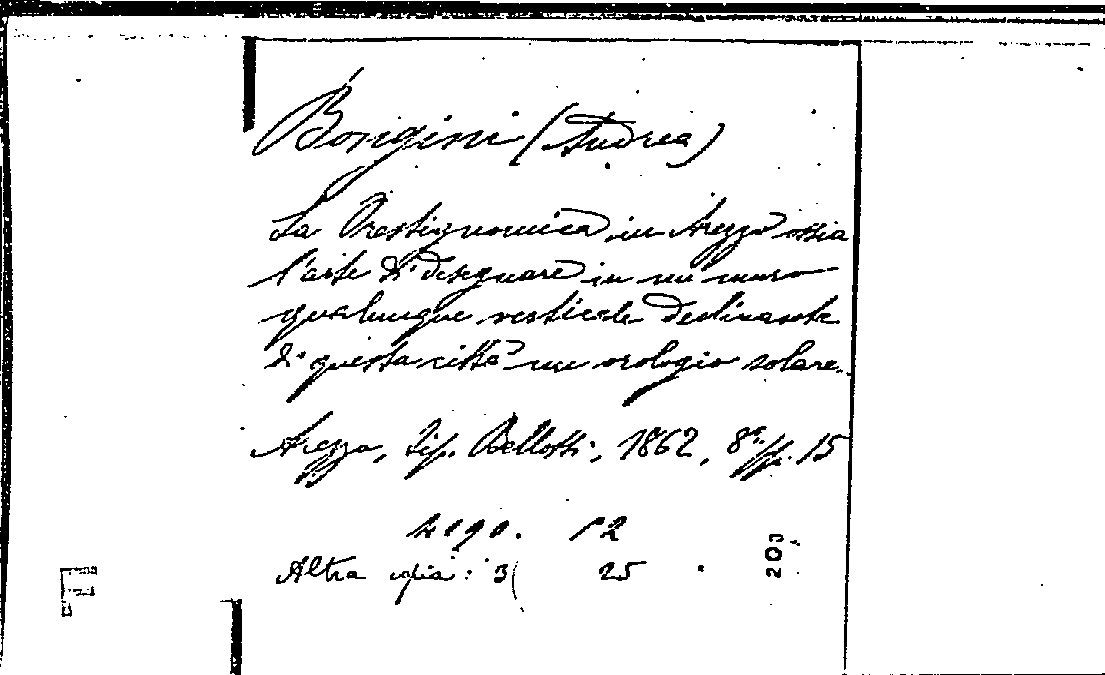 Bongini (Andrea)
La Orestignomica in Arezzo ossia
l'arte di disegnare in un muro
qualunque verticale declinante
di questa città un orologio solare.
Arezzo, Tip. Bellotti, 1862, 8º. pp. 15
12
Altra copia: 25
203